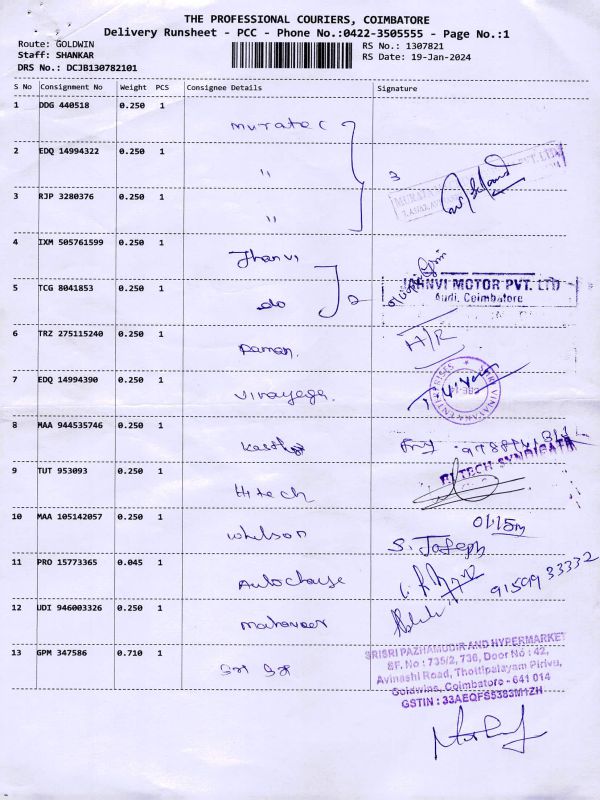 THE PROFESSIONAL COURIERS, COIMBATORE
Delivery Runsheet - PCC - Phone No.:0422-3505555 - Page No.:1
Route: GOLDWIN
RS No.: 1307821
Staff: SHANKAR
RS Date: 19-Jan-2024
DRS No.: DCJB130782101
S No Consignment No Weight PCS Consignee Details Signature
1 DDG 440518 0.250 1 muratec
2 EDQ 14994322 0.250 1 "
3 RJP 3280376 0.250 1 "
3
4 IXM 505761599 0.250 1 Jhanvi
5 TCG 8041853 0.250 1 do 2
JAHNVI MOTOR PVT. LTD
Audi, Coimbatore
6 TRZ 275115240 0.250 1 Raman
H/R
7 EDQ 14994390 0.250 1 Vinayaga
8 MAA 944535746 0.250 1
9 TUT 953093 0.250 1 Hitech
HI TECH SYNDICATE
10 MAA 105142057 0.250 1 Whilson
S. Joseph
11 PRO 15773365 0.045 1
9159933332
12 UDI 946003326 0.250 1 Mahaveer
13 GPM 347586 0.710 1
SRISRI PAZHAMUDIR AND HYPERMARKET
SF. No : 735/2, 736, Door No : 42,
Avinashi Road, Thottipalayam Pirivu,
Goldwins, Coimbatore - 641 014
GSTIN : 33AEQFS5383M1ZH